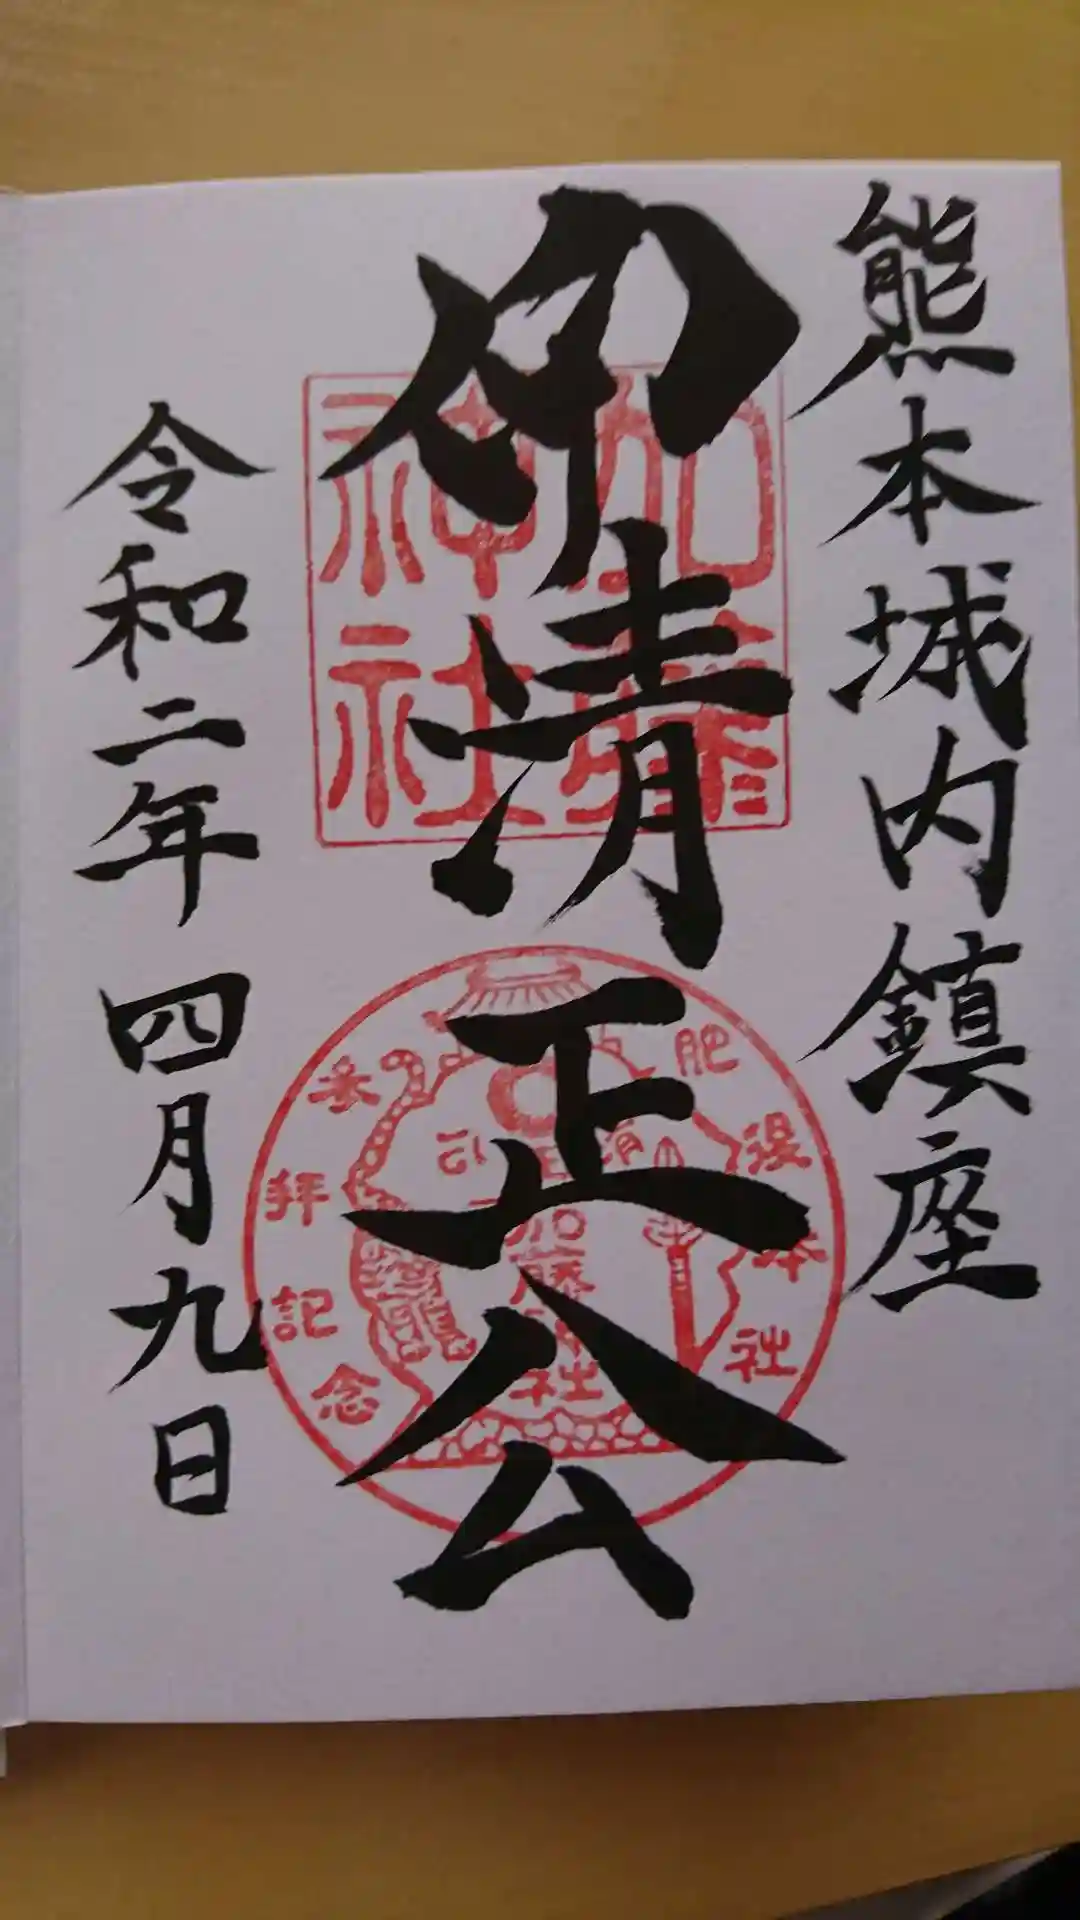 熊本城内鎮座
仰清正公
加藤神社
肥後本社
参拝記念
加藤神社
令和二年四月九日